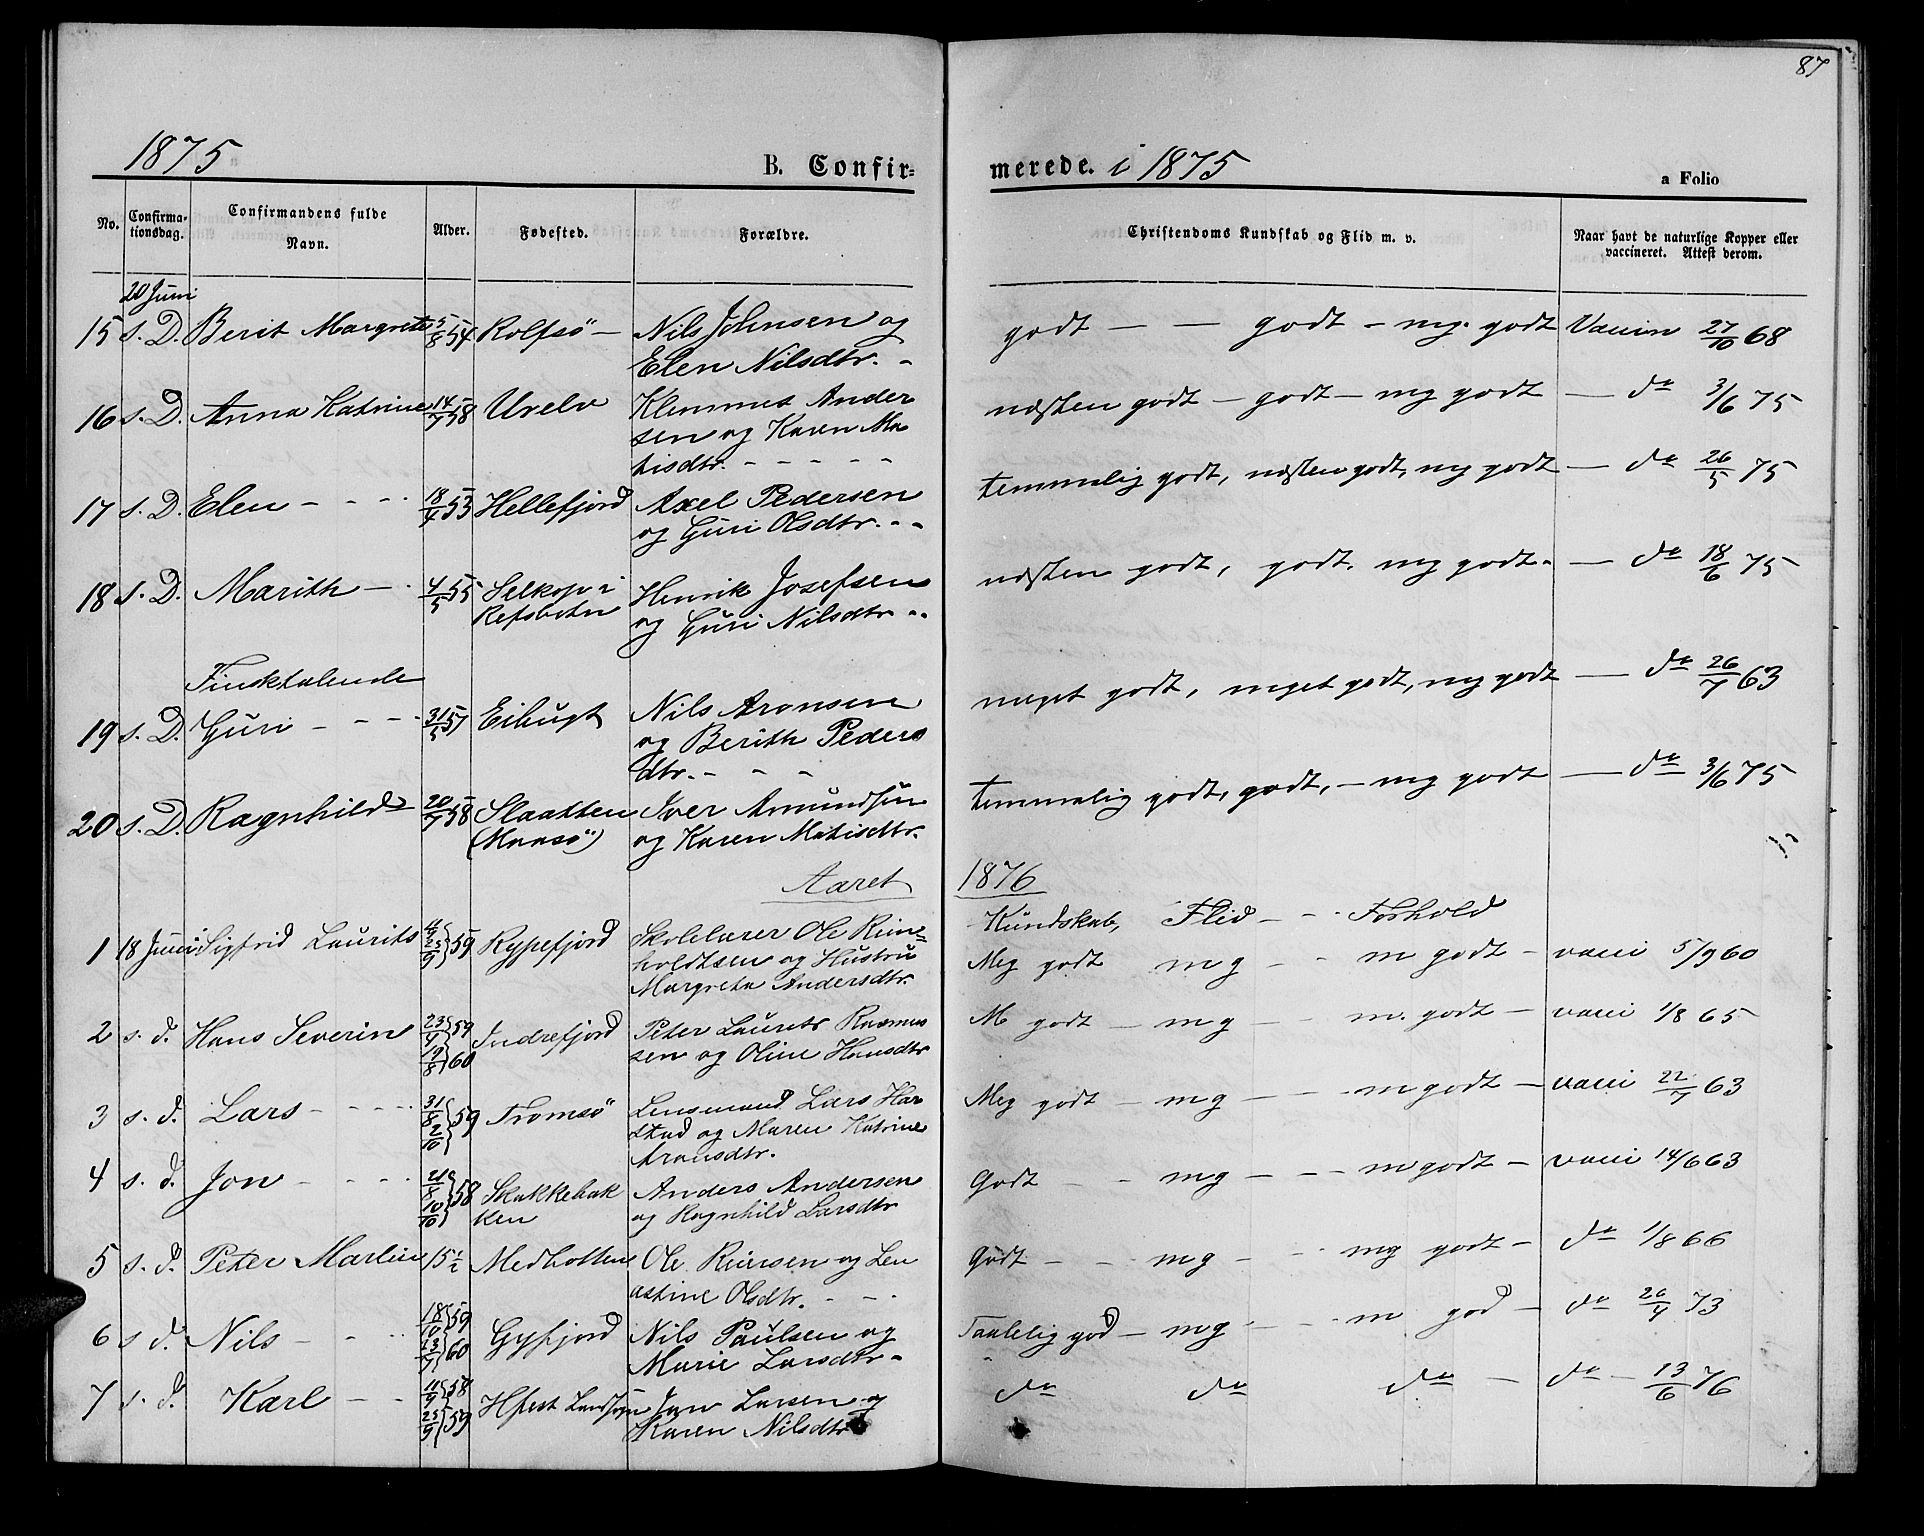 87
1875
B. Confir-
merede. i 1875
a Folio
No.
Confirma-
tionsdag.
Confirmandens fulde
Navn.
Alder.
Fødested.
Forældre.
Christendoms Kundskab og Flid m. v.
Naar havt de naturlige Kopper eller
vaccineret. Attest derom.
20 Juni
15 s. D. Berit Margrete 5/8 54 Rolfsö — Nils Johnsen og
Elen Nilsdtr. -
godt — — godt - mg. godt Vaccin 27/10 68
16 s. D. Anna Katrine 14/7 58 Klemmet Ander
sen og Karen Ma
tisdtr. - - - - -
næsten godt - godt - mg godt — do 3/6 75
17 s. D. Elen - - - 18/4 53 Hellefjord Axel Pedersen
og Guri Olsdtr. - -
temmelig godt, næsten godt, mg godt — do 26/5 75
18 s. D. Marith - - 4/5 55 Selkop i
Refsbotn
Henrik Josefsen
og Guri Nilsdtr - -
næsten godt, godt, mg godt. — do 18/6 75
Finsktalende
19 s. D. Guri - - - - 31/5 57 Eibugt Nils Aronsen
og Berith Peders
dtr. - - -
meget godt, meget godt, mg godt — do 26/7 63
20 s. D. Ragnhild 20/7 58 Slaatten
(Maasö)
Iver Amundsen
og Karen Matisdtr.
temmelig godt, godt, - mg godt — do 3/6 75
Aaret 1876
Kundskab, Flid - - Forhold
1 18 Juni Sigfrid Laurits 59 Rypefjord Skolelærer Ole Rein=
holdtsen og Hustru
Margreta Andersdtr.
Meg godt mg - - m godt - vacci 5/9 60
2 s. d. Hans Severin 23/4 59
19/8 60
Indrefjord Peter Laurits Rasmus
sen og Oline Hansdtr
M godt — mg - - m. godt - vacci 1/8 65
3 s. d. Lars - - - - 31/8 2/10 59 Tromsö Lensmand Lars Har
stad og Maren Katrine
Aronsdtr.
Meg godt - mg - - - m godt - vacci 22/7 63
4 s. d. Jon - - - - 21/8 10/10 58 Skakkebak
ken
Anders Andersen
og Ragnhild Larsdtr
Godt - - mg - - - m godt - vacci 14/6 63
5 s. d. Peter Martin 15 1/2 Medhotten Ole Reiersen og Len
astine Olsdtr. - - -
Godt - - mg - - - mg godt - do 1/8 66
6 s d. Nils - - - 18/10 59
13/7 60
Gyfjord Nils Paulsen og
Marie Larsdtr -
Taalelig god - mg - - m god - do 26/4 73
7 s. d. Karl - - 11/9 58
25/9 59
Hfest Landsogn Jan Larsen og
Karen Nilsdtr
do do do - do - 13/6 76